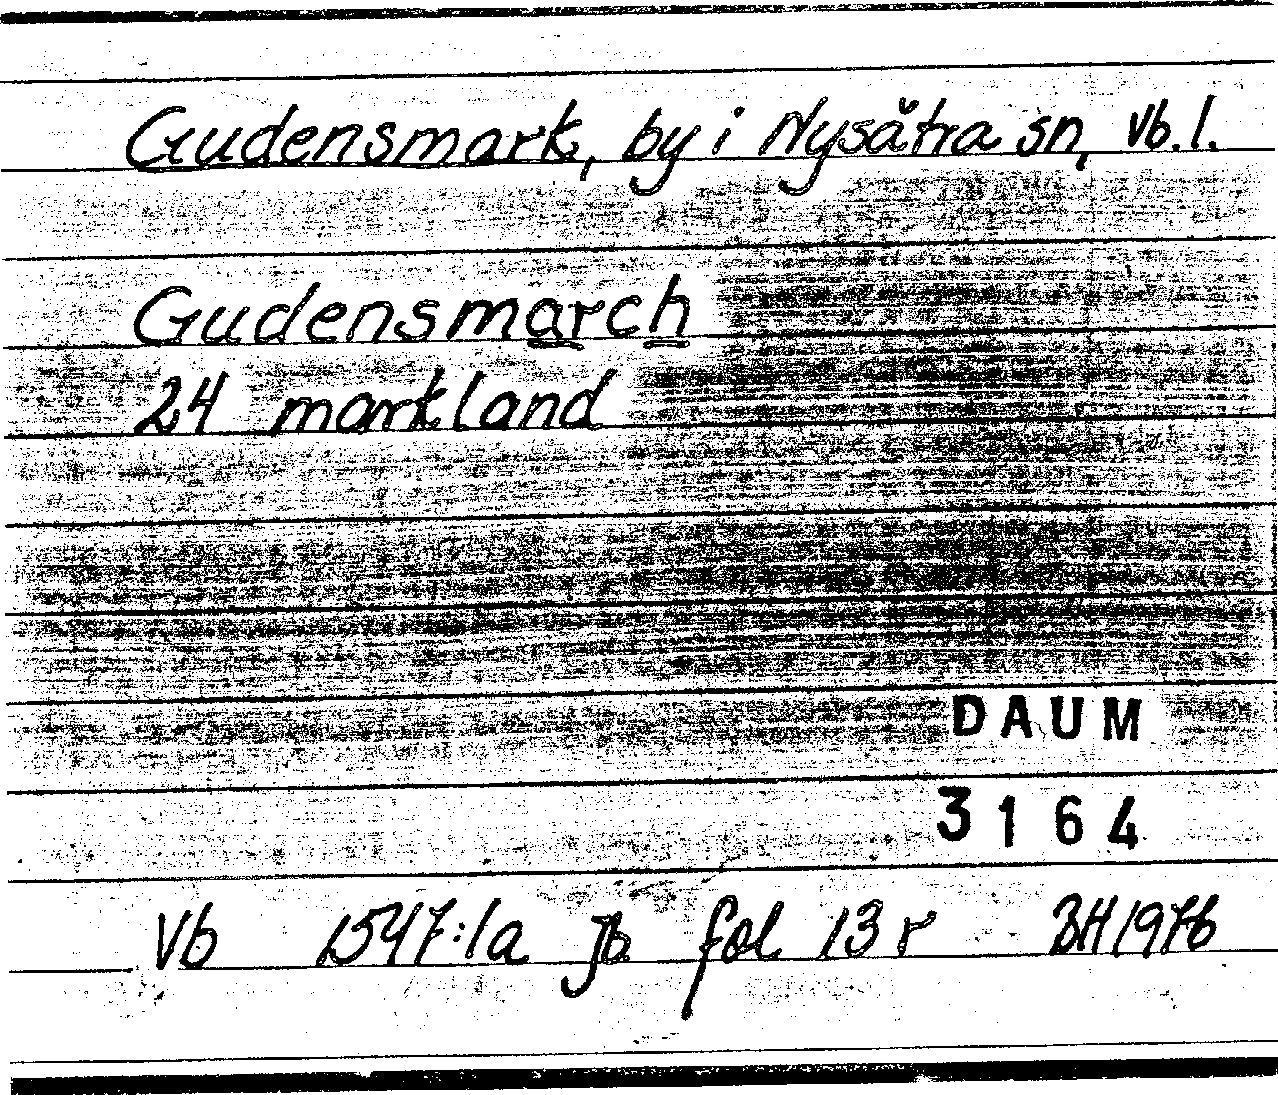 Gudensmark, by i Nysätra sn, Vb.l.
Gudensmarch
24 markland
DAUM
3164
Vb 1547:1a jb fol 13 r BH 1976